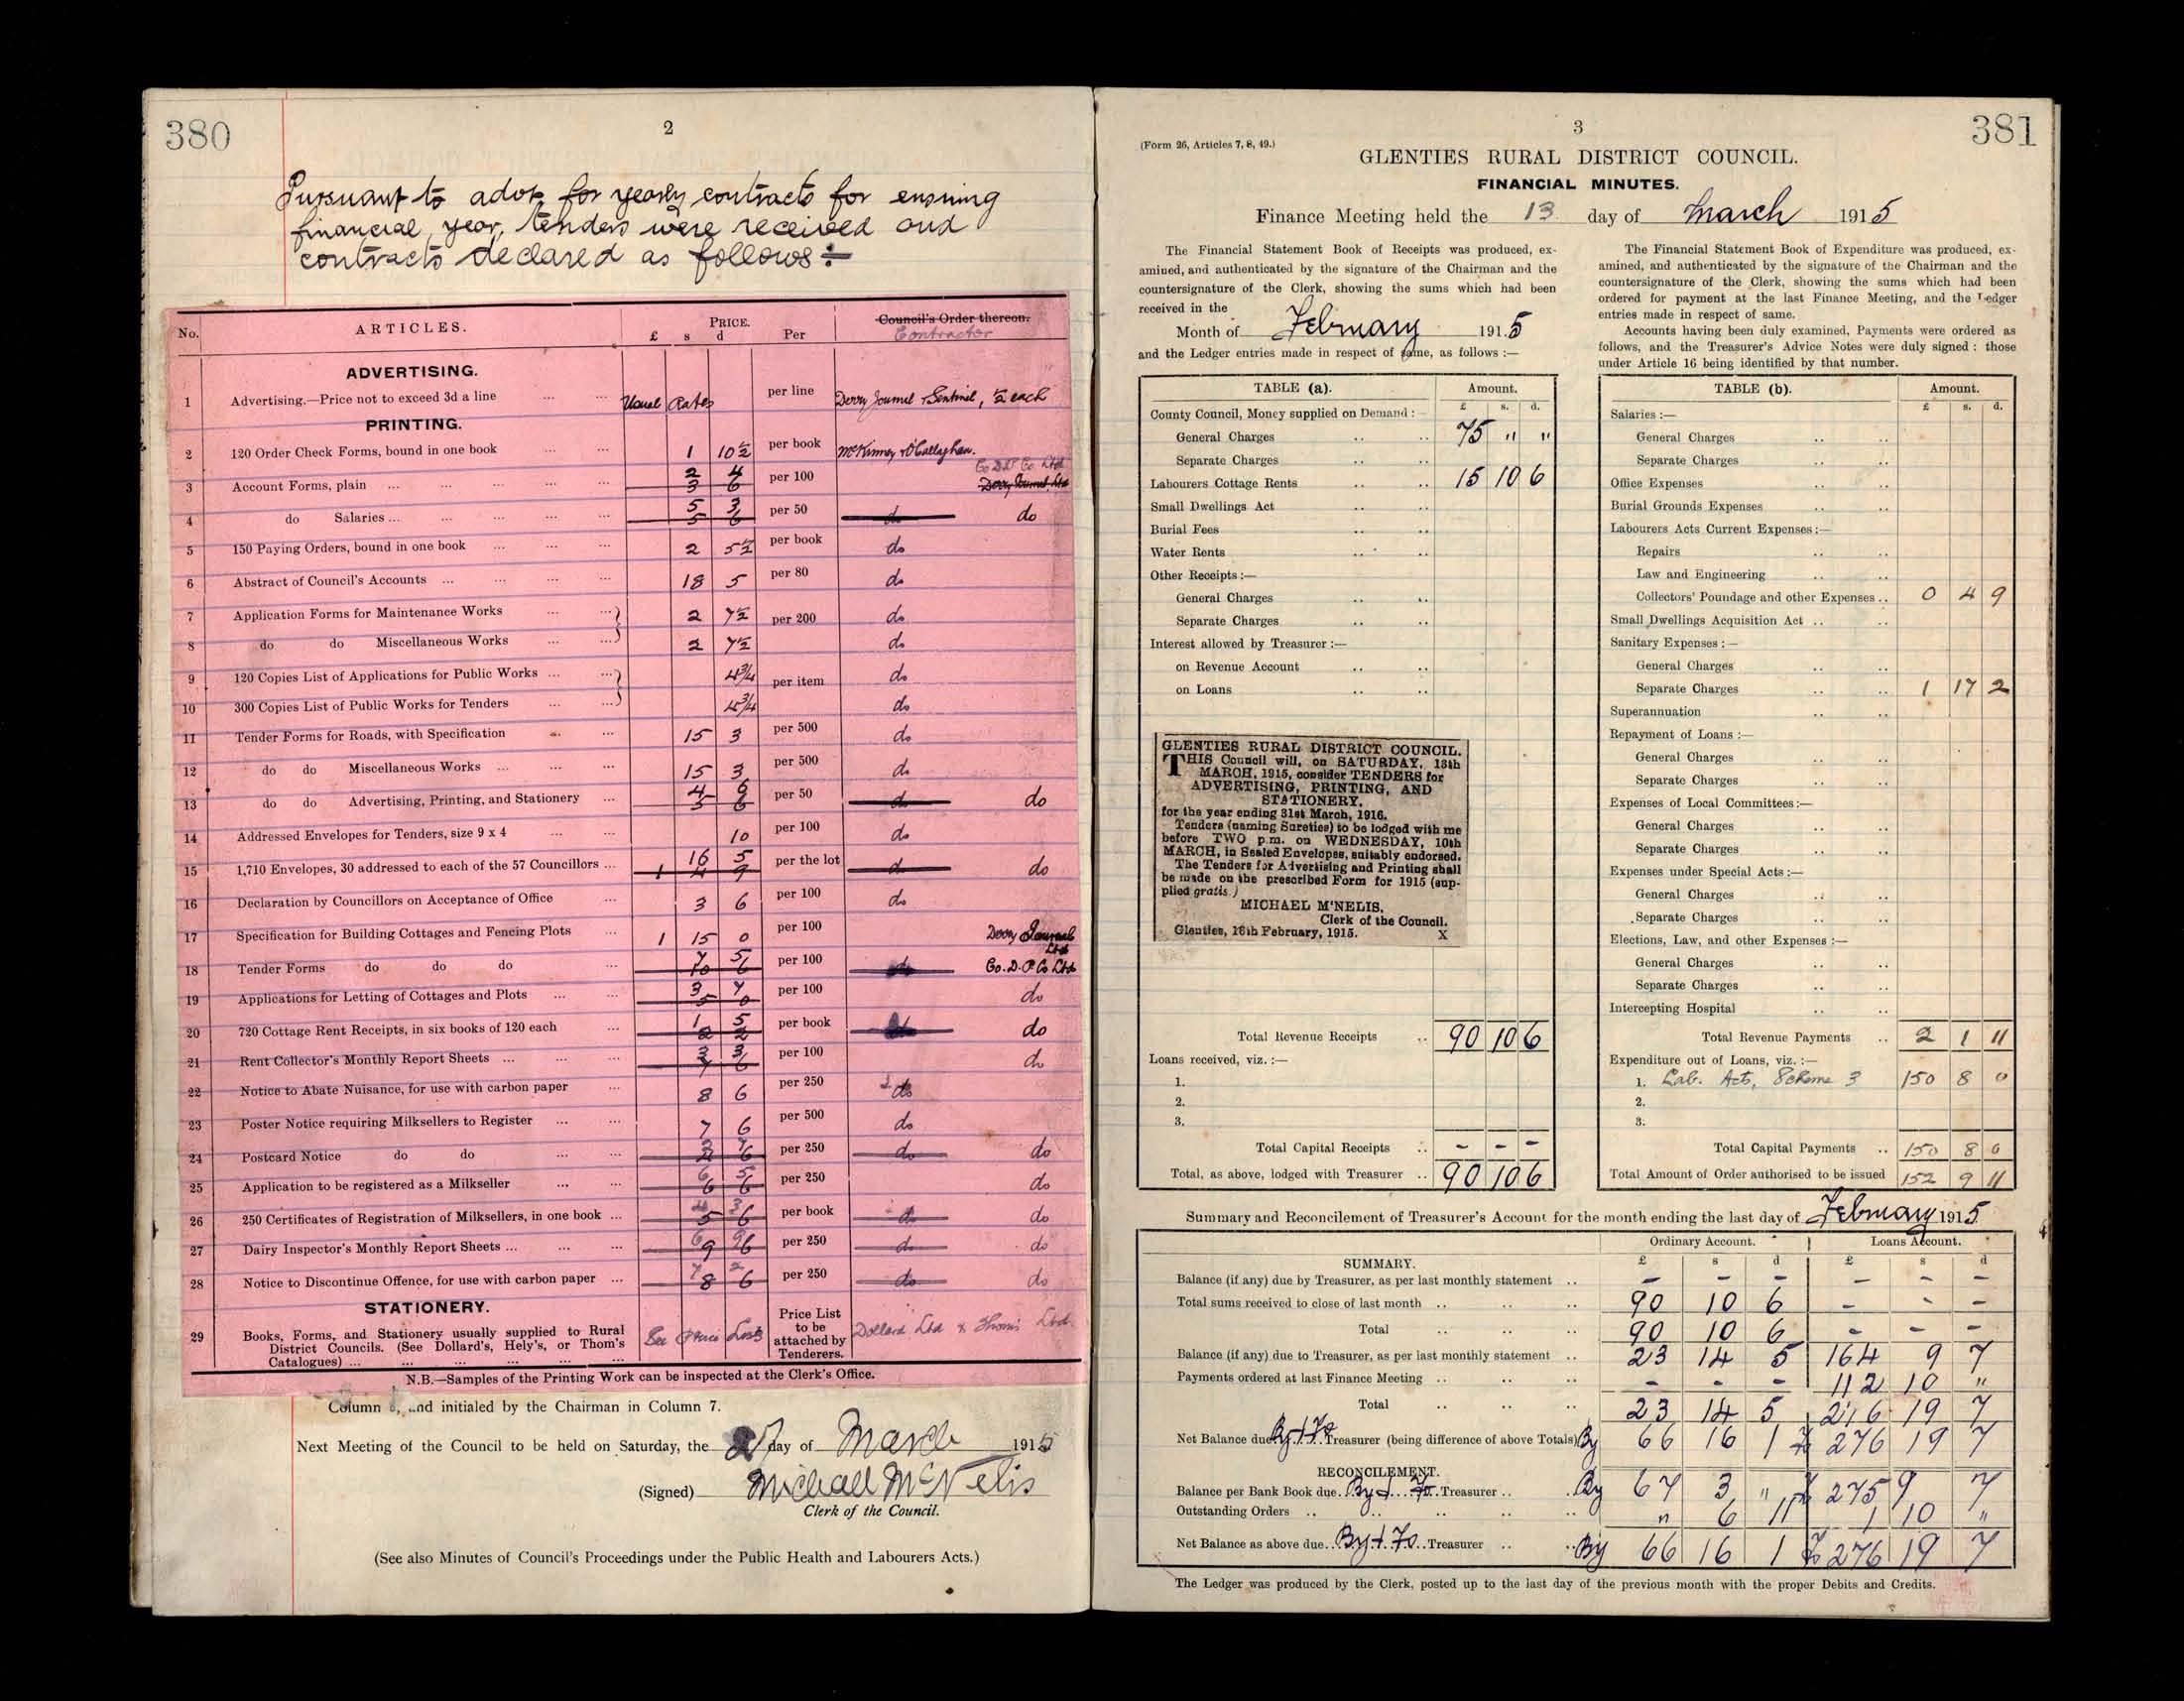 380
2
Pursuant to advt for yearly contracts for ensuing
financial year, tenders were received and
contracts declared as follows:-
No. ARTICLES. PRICE. Council's Order thereon.
£ s d Per Contractor
ADVERTISING.
1 Advertising.—Price not to exceed 3d a line ... ... Usual Rates per line Derry Journal & Sentinel, ½ each
PRINTING.
2 120 Order Check Forms, bound in one book ... ... 1 10½ per book McKinney & O'Callaghan.
2 4 Co D.P. Co Ltd
3 Account Forms, plain ... ... ... ... ... 3 6 per 100 Derry Journal Ltd
5 3
4 do Salaries ... ... ... ... ... 5 6 per 50 do do
5 150 Paying Orders, bound in one book ... ... ... 2 5½ per book do
6 Abstract of Council's Accounts ... ... ... ... 18 5 per 80 do
7 Application Forms for Maintenance Works ... ... 2 7½ per 200 do
8 do do Miscellaneous Works ... ... 2 7½ do
9 120 Copies List of Applications for Public Works ... ... 4¾ per item do
10 300 Copies List of Public Works for Tenders ... ... 4¾ do
11 Tender Forms for Roads, with Specification ... ... 15 3 per 500 do
12 do do Miscellaneous Works ... ... ... 15 3 per 500 do
13 do do Advertising, Printing, and Stationery ... per 50 do do
14 Addressed Envelopes for Tenders, size 9 x 4 ... ... 10 per 100 do
16 5
15 1,710 Envelopes, 30 addressed to each of the 57 Councillors ... 1 4 9 per the lot do do
16 Declaration by Councillors on Acceptance of Office ... 3 6 per 100 do
17 Specification for Building Cottages and Fencing Plots ... 1 15 0 per 100 Derry Journal Ltd
7 5
18 Tender Forms do do do ... 10 6 per 100 do Co. D. P. Co Ltd
3 7
19 Applications for Letting of Cottages and Plots ... ... 5 0 per 100 do
1 5
20 720 Cottage Rent Receipts, in six books of 120 each ... 2 2 per book do do
3 3
21 Rent Collector's Monthly Report Sheets ... ... ... 7 6 per 100 do
22 Notice to Abate Nuisance, for use with carbon paper ... 8 6 per 250 do
23 Poster Notice requiring Milksellers to Register ... ... 7 6 per 500 do
24 Postcard Notice do do ... ... per 250 do do
6 5
25 Application to be registered as a Milkseller ... ... 6 6 per 250 do
26 250 Certificates of Registration of Milksellers, in one book ... 5 6 per book do do
27 Dairy Inspector's Monthly Report Sheets ... ... ... 9 6 per 250 do do
7 2
28 Notice to Discontinue Offence, for use with carbon paper ... 8 6 per 250 do do
STATIONERY.
29 Books, Forms, and Stationery usually supplied to Rural
District Councils. (See Dollard's, Hely's, or Thom's
Catalogues) ... ... ... ... ... ...
See Price Lists
Price List
to be
attached by
Tenderers.
Dollard Ltd & Thom's Ltd.
N.B.—Samples of the Printing Work can be inspected at the Clerk's Office.
Column and initialed by the Chairman in Column 7.
Next Meeting of the Council to be held on Saturday, the 27 day of March 1915
(Signed) Michael McNelis
Clerk of the Council.
(See also Minutes of Council's Proceedings under the Public Health and Labourers Acts.)
3
381
(Form 26, Articles 7, 8, 49.)
GLENTIES RURAL DISTRICT COUNCIL.
FINANCIAL MINUTES.
Finance Meeting held the 13 day of March 1915
The Financial Statement Book of Receipts was produced, ex-
amined, and authenticated by the signature of the Chairman and the
countersignature of the Clerk, showing the sums which had been
received in the
Month of February 1915
and the Ledger entries made in respect of same, as follows :—
TABLE (a). Amount.
£ s. d.
County Council, Money supplied on Demand :
General Charges .. .. 75 " "
Separate Charges .. ..
Labourers Cottage Rents .. .. 15 10 6
Small Dwellings Act .. ..
Burial Fees .. ..
Water Rents .. ..
Other Receipts :—
General Charges .. ..
Separate Charges .. ..
Interest allowed by Treasurer :—
on Revenue Account .. ..
on Loans .. ..
GLENTIES RURAL DISTRICT COUNCIL.
THIS Council will, on SATURDAY, 13th
MARCH, 1915, consider TENDERS for
ADVERTISING, PRINTING, AND
STATIONERY,
for the year ending 31st March, 1916.
Tenders (naming Sureties) to be lodged with me
before TWO p.m. on WEDNESDAY, 10th
MARCH, in Sealed Envelopes, suitably endorsed.
The Tenders for Advertising and Printing shall
be made on the prescribed Form for 1915 (sup-
plied gratis.)
MICHAEL M'NELIS,
Clerk of the Council.
Glenties, 16th February, 1915. X
Total Revenue Receipts .. 90 10 6
Loans received, viz. :—
1.
2.
3.
Total Capital Receipts .. - - -
Total, as above, lodged with Treasurer .. 90 10 6
The Financial Statement Book of Expenditure was produced, ex-
amined, and authenticated by the signature of the Chairman and the
countersignature of the Clerk, showing the sums which had been
ordered for payment at the last Finance Meeting, and the Ledger
entries made in respect of same.
Accounts having been duly examined, Payments were ordered as
follows, and the Treasurer's Advice Notes were duly signed : those
under Article 16 being identified by that number.
TABLE (b). Amount.
£ s. d.
Salaries :—
General Charges .. ..
Separate Charges .. ..
Office Expenses .. ..
Burial Grounds Expenses .. ..
Labourers Acts Current Expenses :—
Repairs .. ..
Law and Engineering .. ..
Collectors' Poundage and other Expenses .. 0 4 9
Small Dwellings Acquisition Act .. ..
Sanitary Expenses : —
General Charges .. ..
Separate Charges .. .. 1 17 2
Superannuation .. ..
Repayment of Loans :—
General Charges .. ..
Separate Charges .. ..
Expenses of Local Committees :—
General Charges .. ..
Separate Charges .. ..
Expenses under Special Acts :—
General Charges .. ..
Separate Charges .. ..
Elections, Law, and other Expenses :—
General Charges .. ..
Separate Charges .. ..
Intercepting Hospital .. ..
Total Revenue Payments .. 2 1 11
Expenditure out of Loans, viz. :—
1. Lab. Acts, Scheme 3 150 8 0
2.
3.
Total Capital Payments .. 150 8 0
Total Amount of Order authorised to be issued 152 9 11
Summary and Reconcilement of Treasurer's Account for the month ending the last day of February 1915
Ordinary Account. Loans Account.
SUMMARY. £ s d £ s d
Balance (if any) due by Treasurer, as per last monthly statement .. - - - - - -
Total sums received to close of last month .. .. .. 90 10 6 - - -
Total .. .. .. 90 10 6 - - -
Balance (if any) due to Treasurer, as per last monthly statement .. 23 14 5 164 9 7
Payments ordered at last Finance Meeting .. .. .. - - - 112 10 "
Total .. .. .. 23 14 5 276 19 7
Net Balance due By & To Treasurer (being difference of above Totals) By 66 16 1 To 276 19 7
RECONCILEMENT.
Balance per Bank Book due By & To Treasurer .. .. By 67 3 " To 275 9 7
Outstanding Orders .. .. .. .. .. " 6 11 1 10 "
Net Balance as above due By & To Treasurer .. .. By 66 16 1 To 276 19 7
The Ledger was produced by the Clerk, posted up to the last day of the previous month with the proper Debits and Credits.